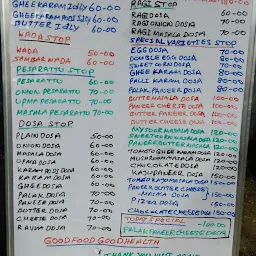 GHEE KARAM Idly 60-00
BUTTER Idly 60-00
WADA STOP
WADA 50-00
SAMBAR WADA 60-00
PESARATTO STOP
PESARATTO 60-00
ONION PESARATTO 70-00
UPMA PESARATTO 70-00
MASALA PESARATTO 70-00
DOSA STOP
PLAIN DOSA 50-00
ONION DOSA 60-00
MASALA DOSA 60-00
UPMA DOSA 60-00
KARAM PODI DOSA 60-00
KARAM DOSA 60-00
GHEE DOSA 60-00
PALAK DOSA 70-00
PANEER DOSA 70-00
BUTTER DOSA 70-00
CHEESE DOSA 70-00
RAVVA DOSA 70-00
RAGI STOP
RAGI DOSA 60-00
RAGI ONION DOSA 70-00
RAGI MASALA DOSA 70-00
SPECIAL VARIETIES STOP
EGG DOSA 70-00
DOUBLE EGG DOSA 80-00
SWEET CORN DOSA 80-00
GHEE KARAM DOSA 80-00
PALLI KARAM DOSA 80-00
PALAK PANEER DOSA 80-00
BUTTER MASALA DOSA 100-00
PANEER CHEESE DOSA
BUTTER PANEER DOSA
BUTTER CHEESE DOSA
MYSORE MASALA DOSA
SWEET CORN MASALA DOSA
PANEER BUTTER MASALA
TOMATO GHEE KARAM DOSA
MUSHROOM MASALA DOSA
CHOCOLATE DOSA
KAJU PANEER DOSA
TOMATO KAJU MASALA DOSA
PANEER BUTTER CHEESE
MASALA DOSA 150-00
PIZZA DOSA
CHOCOLATE CHEESE DOSA 150-00
TODAY SPECIAL
PALAK PANEER CHEESE DOSA
GOOD FOOD GOOD HEALTH
THANK YOU VISIT AGAIN